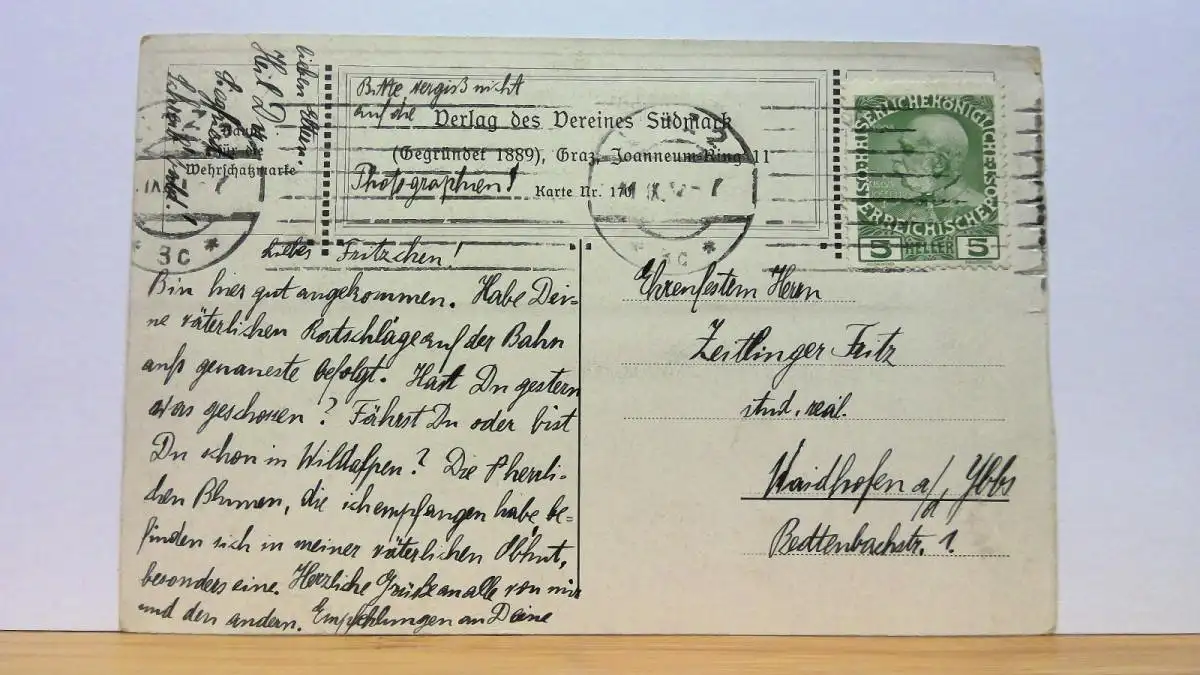 lieben Eltern.
Heil D
Siegfried
Schreib bald!
Raum
für die
Wehrschatzmarke
Bitte vergiß nicht
auf die
Verlag des Vereines Südmark
(Gegründet 1889), Graz, Joanneum-Ring 11
Photographien!
Karte Nr. 170
IX
3C
IX
3C
KAISERLICHE KÖNIGLICHE POST
ÖSTERREICHISCHE
5 HELLER 5
Liebes Fritzchen!
Bin hier gut angekommen. Habe Dei-
ne väterlichen Ratschläge auf der Bahn
aufs genaueste befolgt. Hast Du gestern
was geschossen? Fährst Du oder bist
Du schon in Wildalpen? Die herrli-
chen Blumen, die ich empfangen habe, be-
finden sich in meiner väterlichen Obhut,
besonders eine. Herzliche Grüße an alle von mir
und den andern. Empfehlungen an Deine
Ehrenfestem Herrn
Zeitlinger Fritz
stud. real.
Waidhofen a/d. Ybbs
Bedtenbachstr. 1.